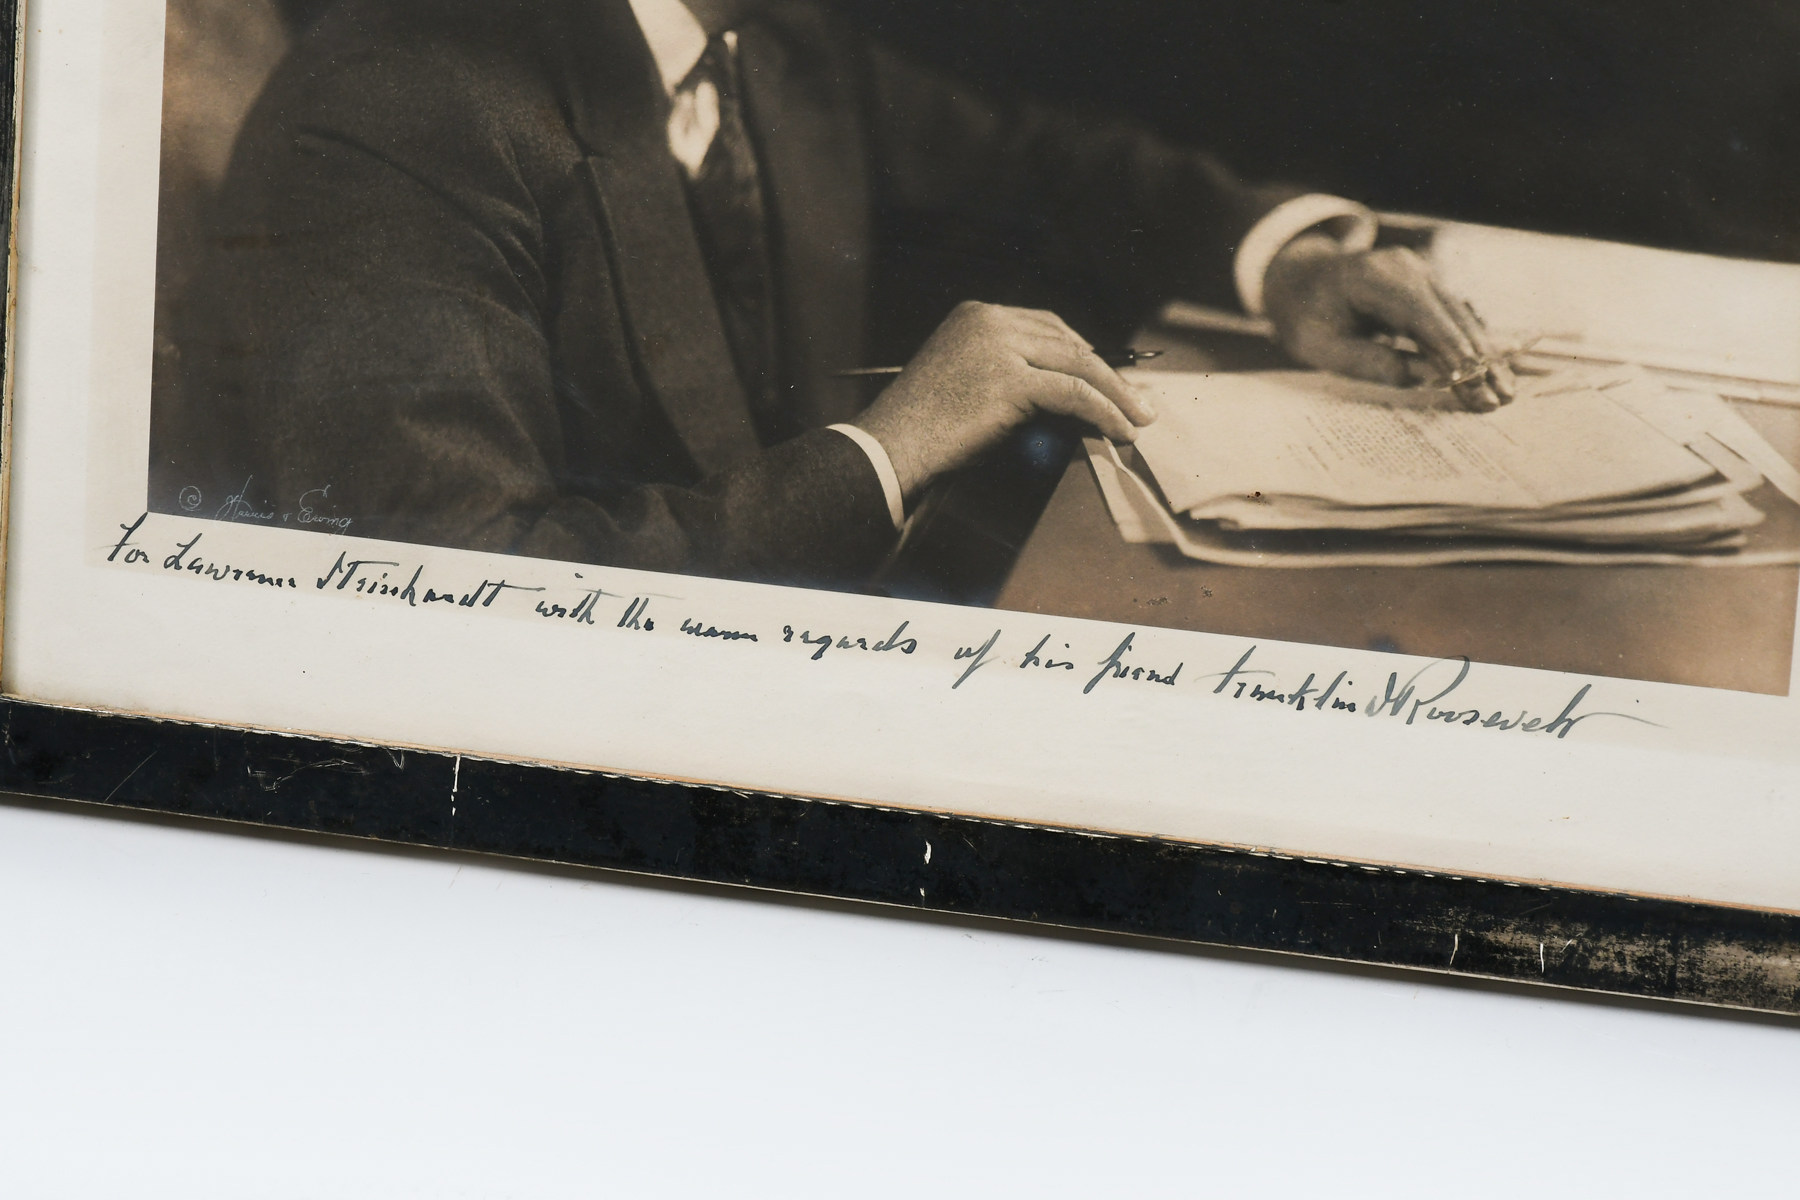 © Harris & Ewing
For Lawrence Steinhardt with the warm regards of his friend Franklin D Roosevelt